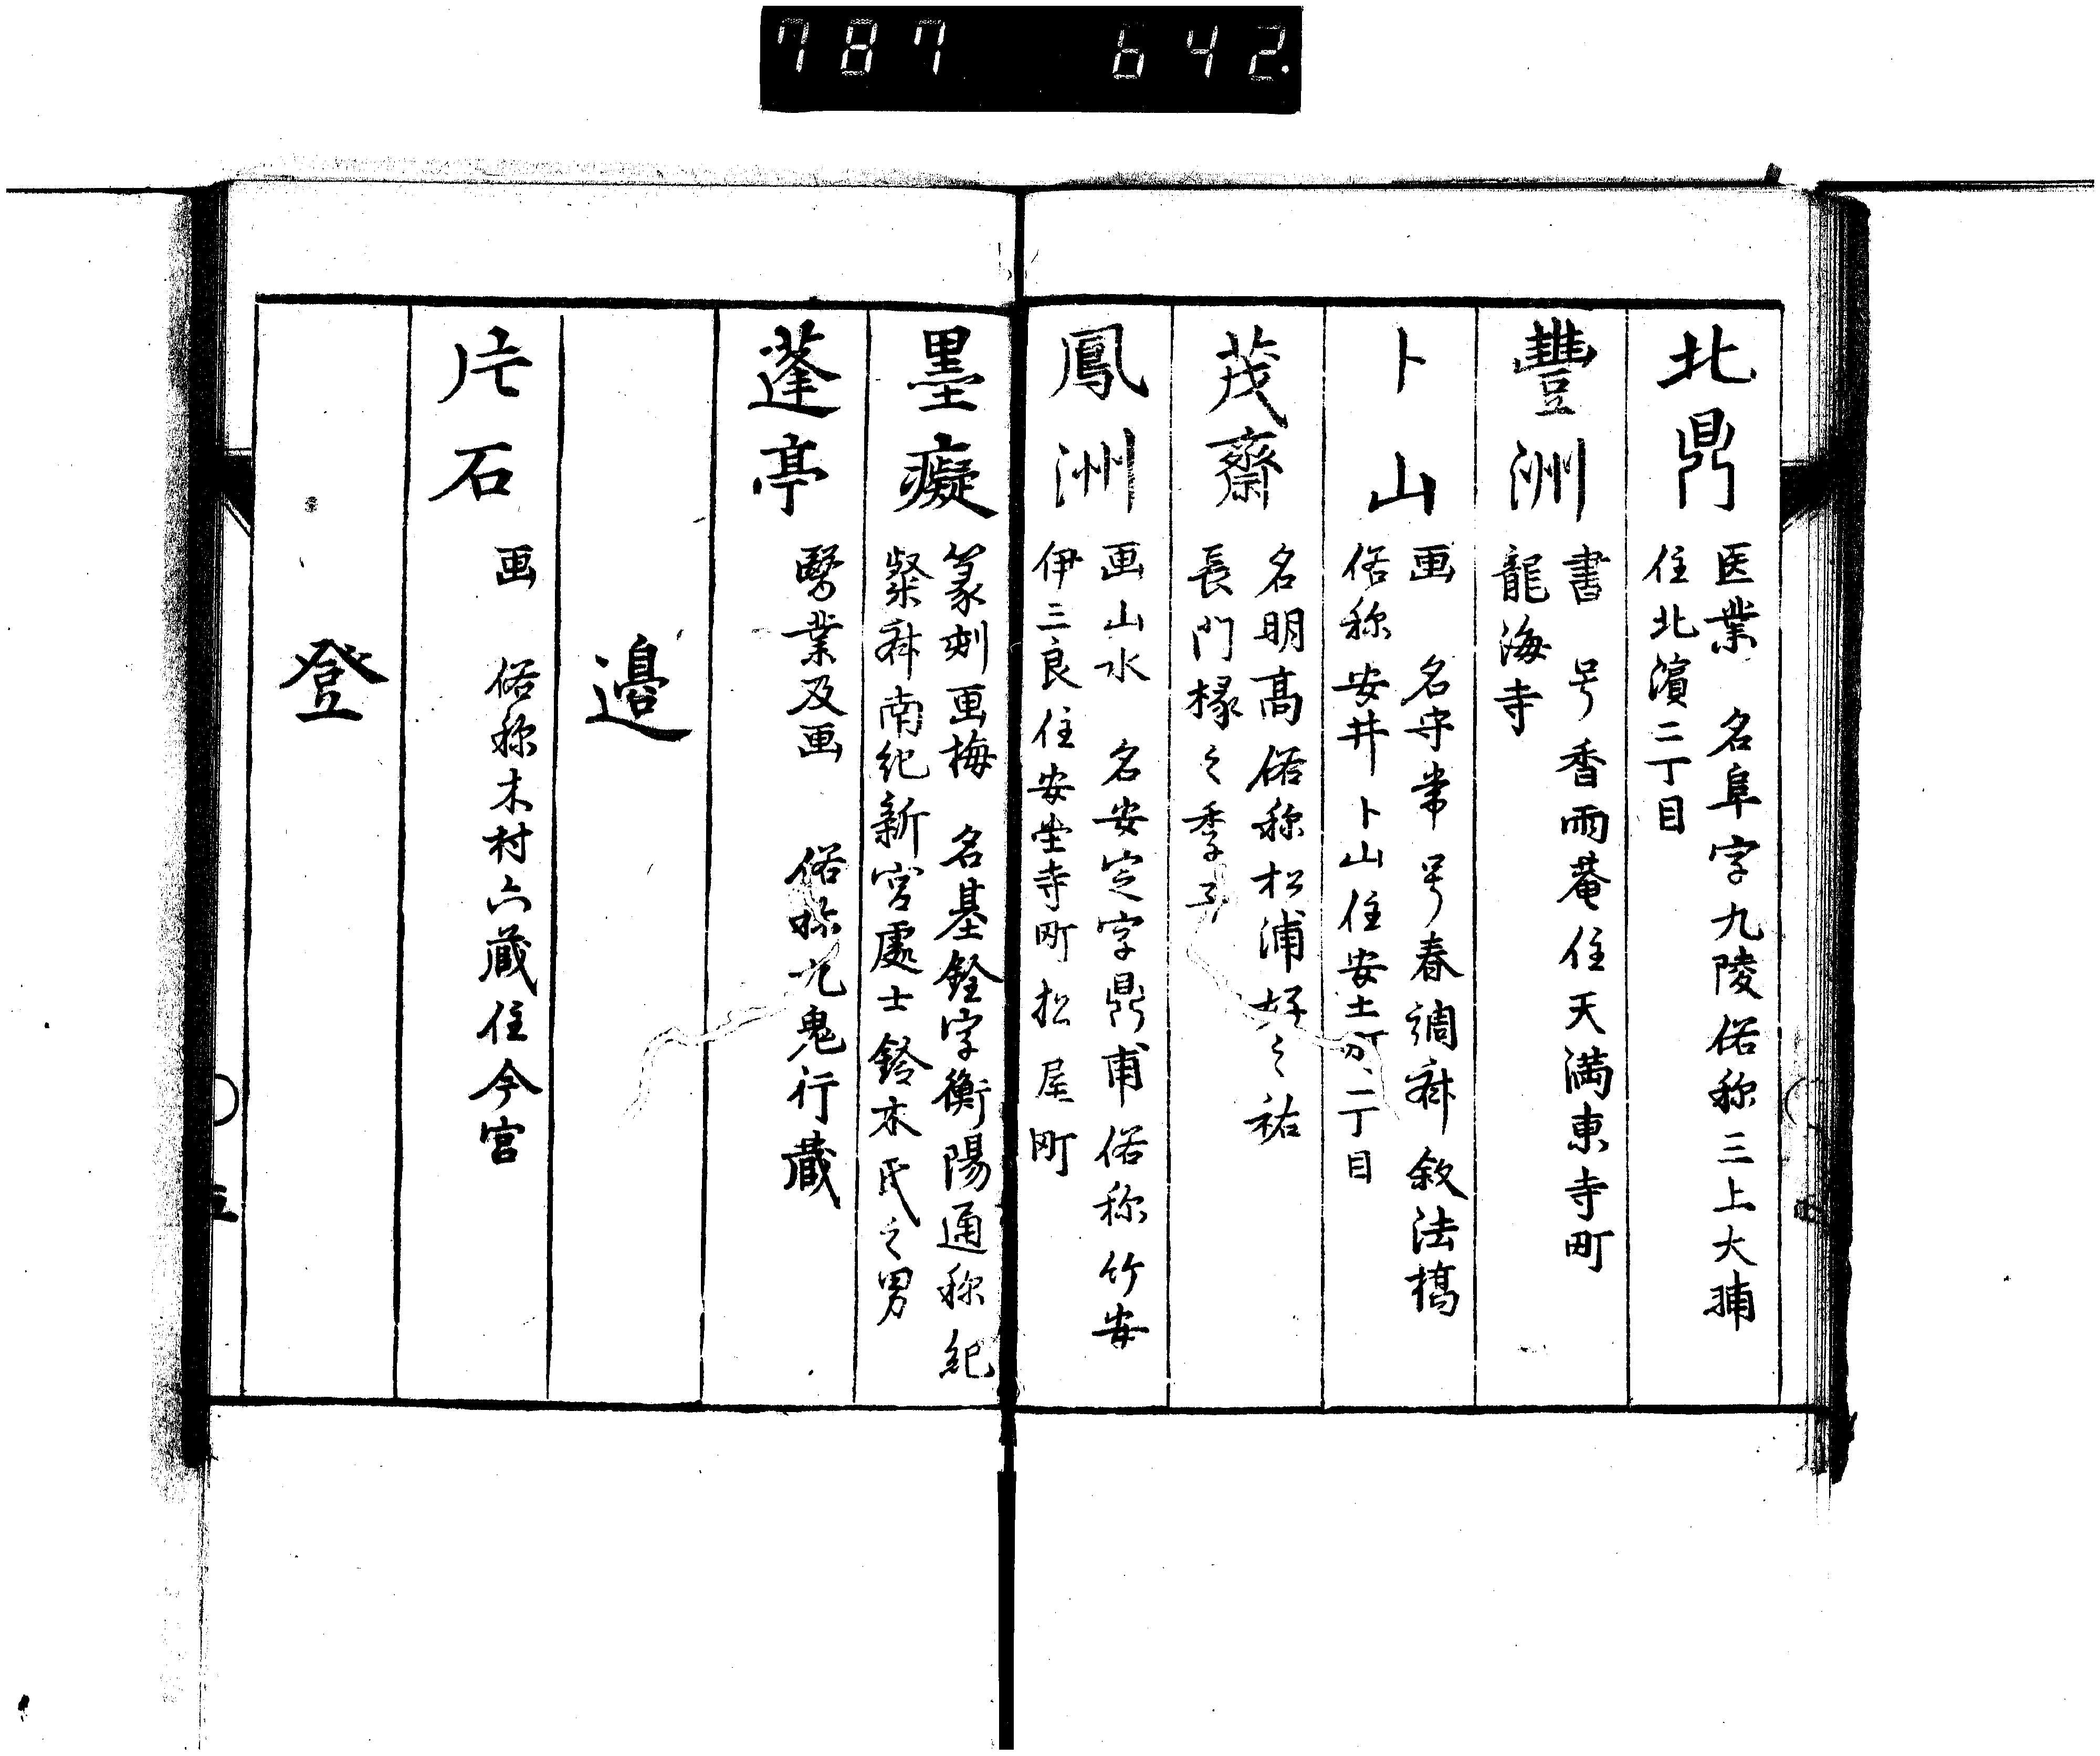 787 642.
北鼎
医業 名阜字九陵俗称三上大輔
住北濱二丁目
豐洲
書 号香雨菴住天満東寺町
龍海寺
卜山
画 名守常号春調斎叙法橋
俗称安井卜山住安土町二丁目
茂齋
名明髙俗称松浦好之祐
長門椽之季子
鳳洲
画山水 名安定字鼎甫俗称竹安
伊三良住安堂寺町松屋町
墨癡
篆刻画梅 名基銓字衡陽通称紀
粲斎南紀新宮處士鈴木氏之男
蓬亭
醫業及画 俗称九鬼行蔵
邉
片石
画 俗称木村六蔵住今宮
登